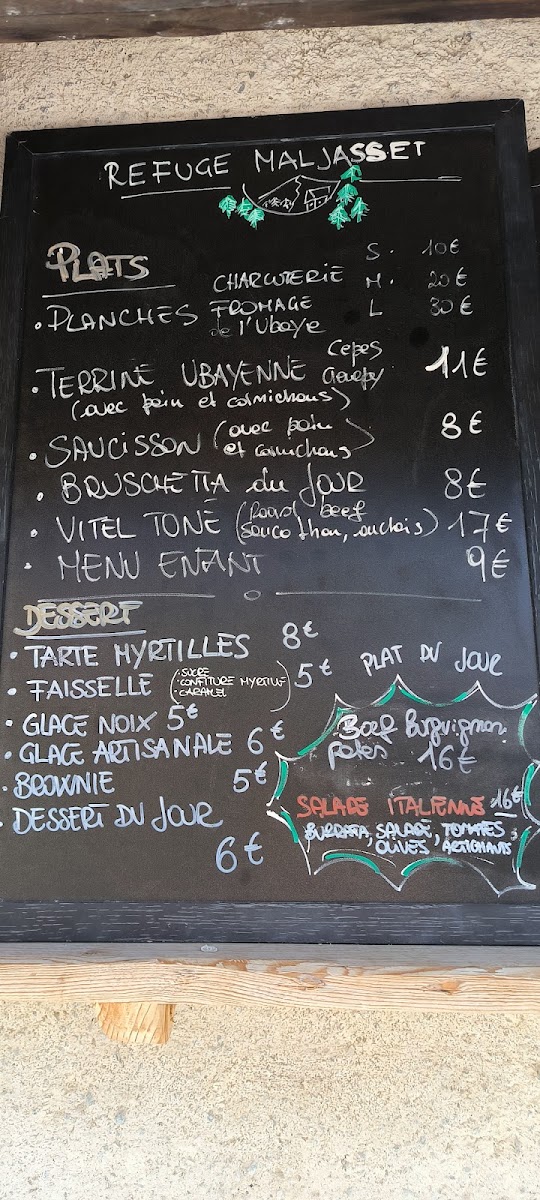 REFUGE MALJASSET
PLATS
S. 10€
CHARCUTERIE M. 20€
• PLANCHES FROMAGE L 30€
de l'Ubaye
Cepes
• TERRINE UBAYENNE Genepy 11€
(avec pain et cornichons)
• SAUCISSON (avec pain et cornichons) 8€
• BRUSCHETTA du JOUR 8€
• VITEL TONE (Road beef sauce thon, anchois) 17€
• MENU ENANT 9€
DESSERT
• TARTE MYRTILLES 8€
• FAISSELLE (• SUCRE • CONFITURE MYRTILLE • CARAMEL) 5€
• GLACE NOIX 5€
• GLACE ARTISANALE 6€
• BROWNIE 5€
• DESSERT DU JOUR
6€
PLAT DU JOUR
Bœf Burguignon
pates 16€
SALADE ITALIENNE 16€
BURRATA, SALADE, TOMATES
OLIVES, ARTICHAUTS